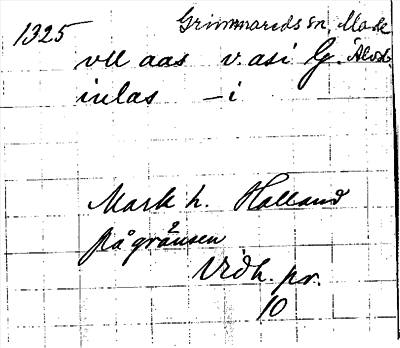 1325 Grimmareds sn, Mark
vll aas v. asi G. Älvsb.
inlas – i
Mark h. Halland
på gränsen
2
Vidh. pr.
10